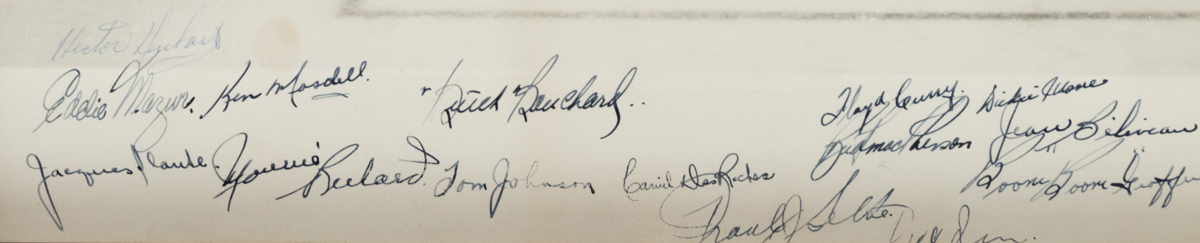 Hector Dubois
Eddie Mazur. Ken Mosdell. "Butch" Bouchard. Floyd Curry. Dickie Moore
Bud MacPherson Jean Béliveau
Jacques Plante. Maurice Richard. Tom Johnson Camil DesRoches "Boom Boom" Geoffrion
Frank J. Selke.